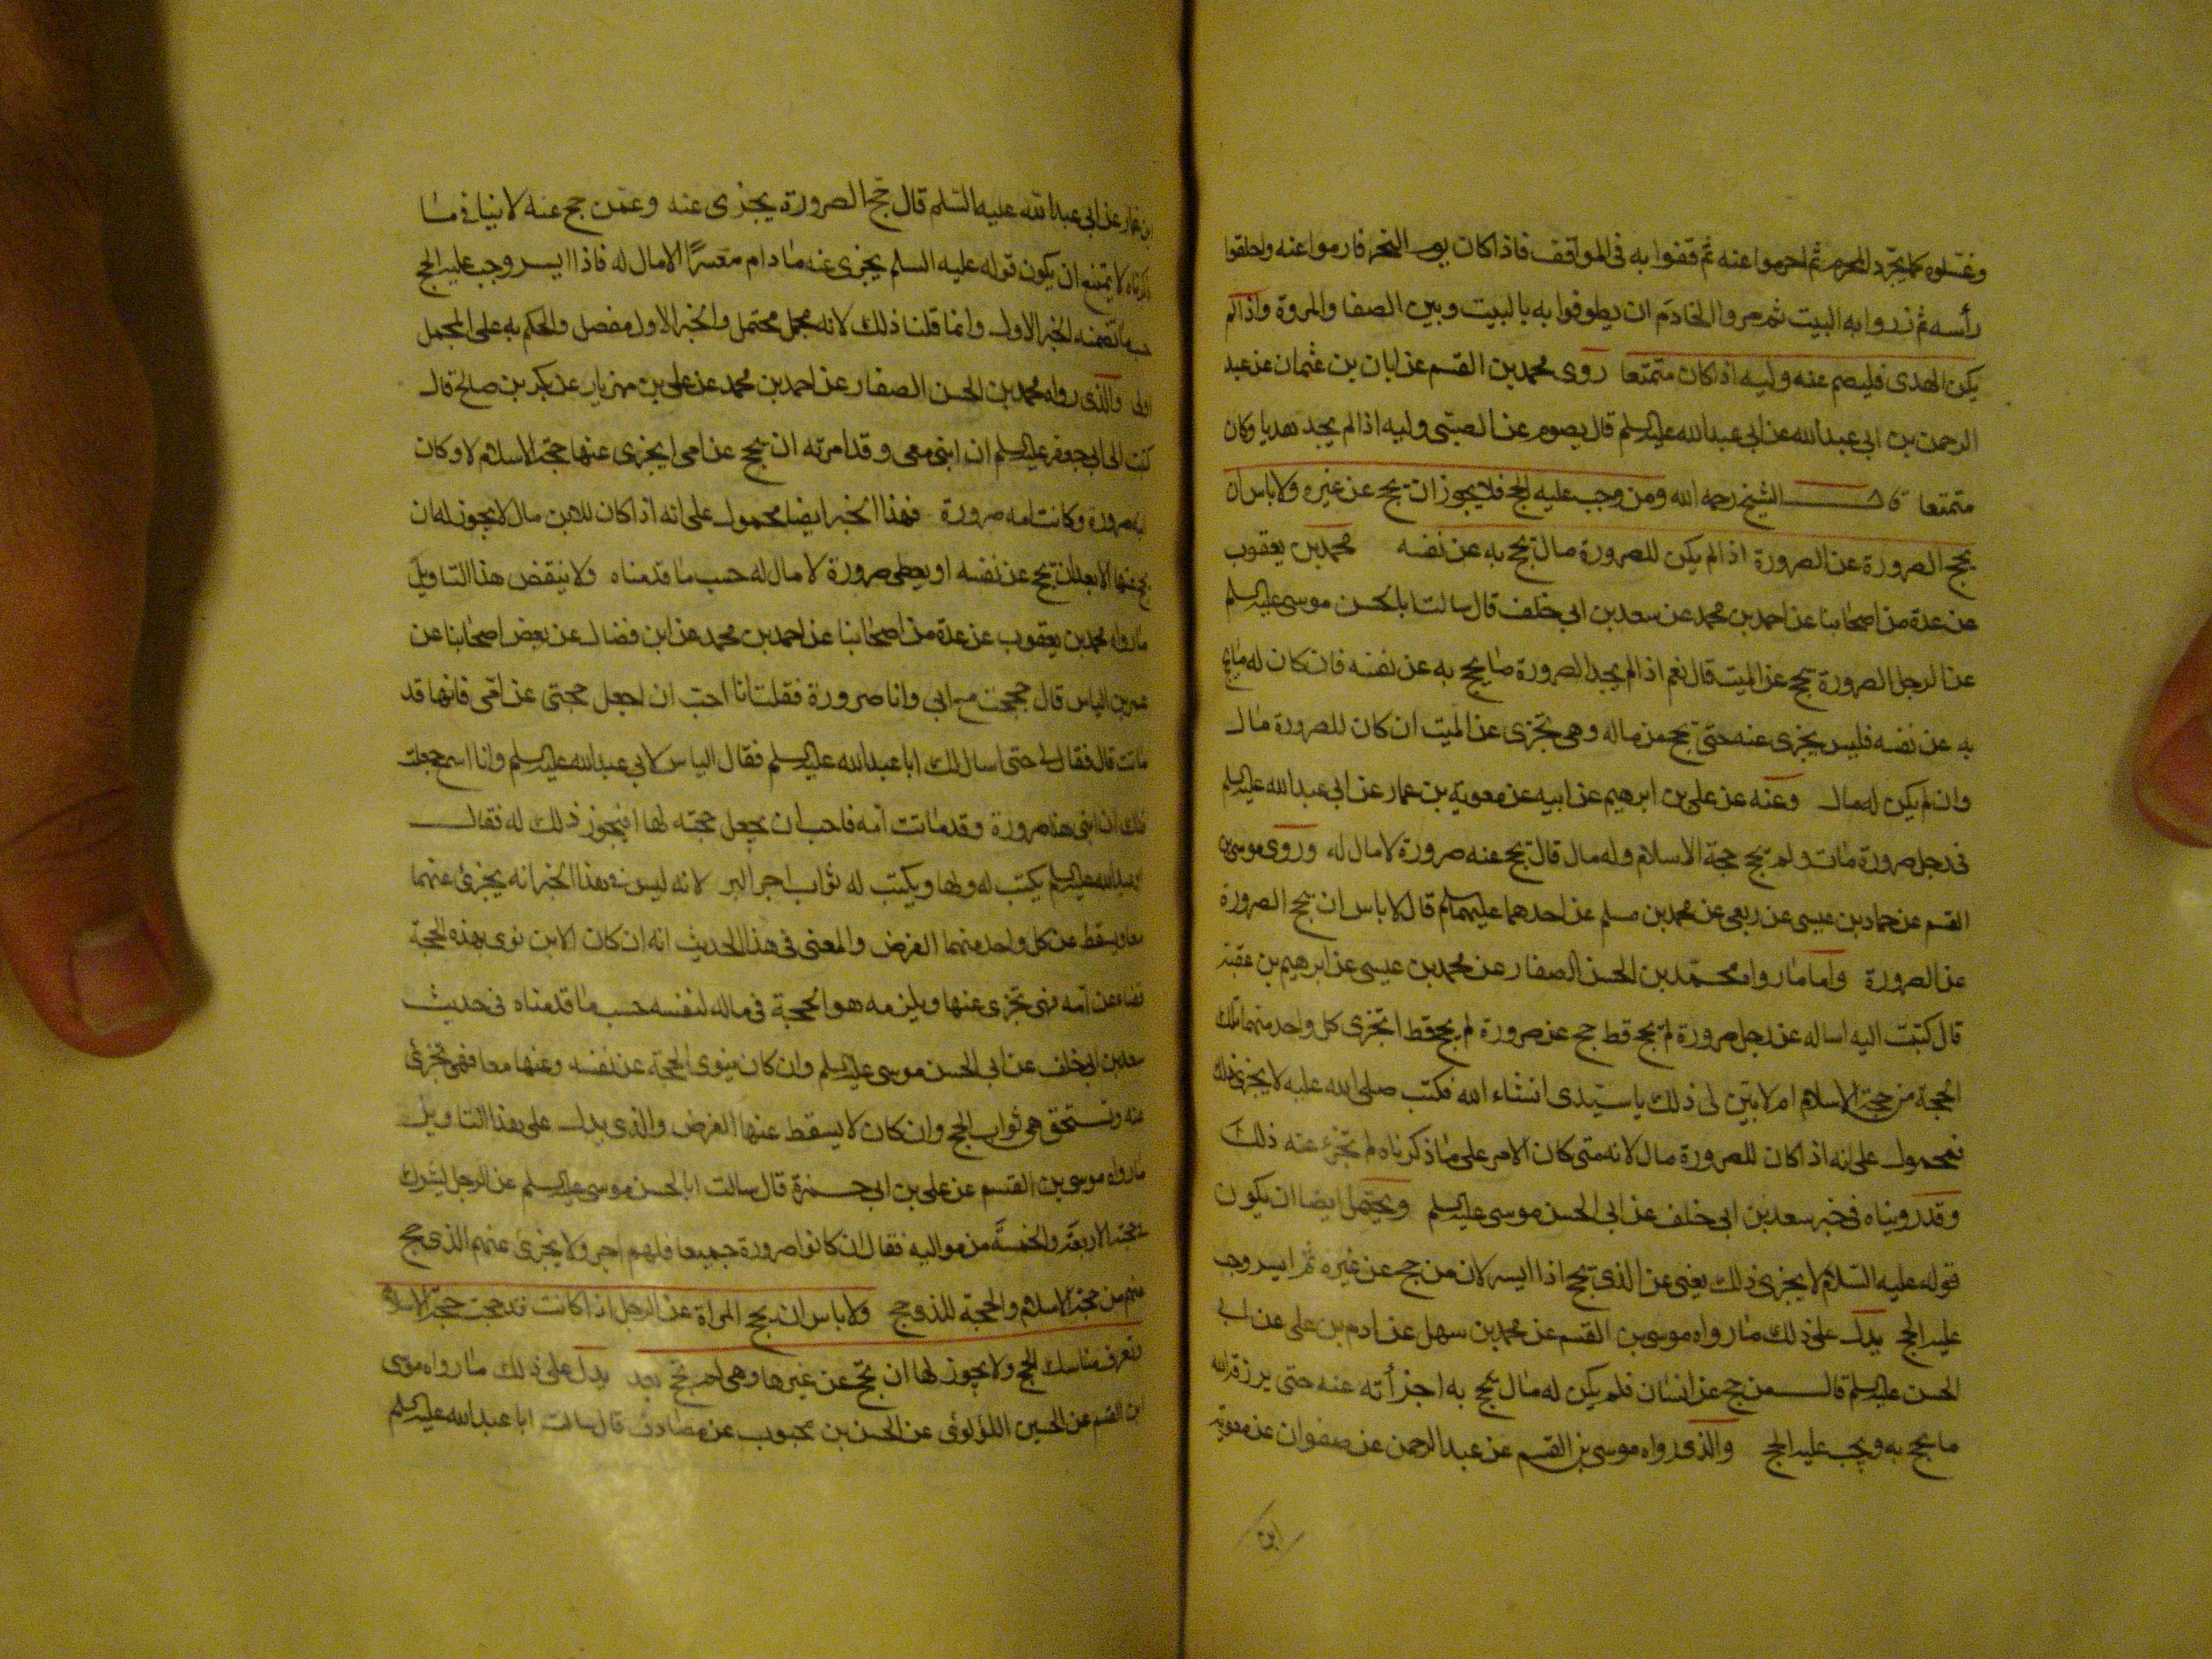 وغسلوه كما يجرد المحرم ثم احرموا عنه ثم قفوا به فى المواقف فاذا كان يوم النحر فارموا عنه واحلقوا
رأسه ثم زوروا به البيت ثم مروا الخادم ان يطوفوا به بالبيت وبين الصفا والمروة واذا لم
يكن الهدى فليصم عنه وليه اذا كان متمتعا روى محمد بن القسم عن ابان بن عثمان عن عبد
الرحمن بن ابى عبد الله عن ابى عبد الله عليه السلم قال يصوم عن الصبى وليه اذا لم يجد هديا وكان
متمتعا قال الشيخ رحمه الله ومن وجب عليه الحج فلا يجوز ان يحج عن غيره ولا باس ان
يحج الصرورة عن الصرورة اذا لم يكن للصرورة مال يحج به عن نفسه محمد بن يعقوب
عن عدة من اصحابنا عن احمد بن محمد عن سعد بن ابى خلف قال سالت ابا الحسن موسى عليه السلم
عن الرجل الصرورة يحج عن الميت قال نعم اذا لم يجد الصرورة ما يحج به عن نفسه فان كان له ما يحج
به عن نفسه فليس يجزى عنه حتى يحج من ماله وهى تجزى عن الميت ان كان للصرورة مال
وان لم يكن له مال وعنه عن على بن ابرهيم عن ابيه عن معوية بن عمار عن ابى عبد الله عليه السلم
فى رجل صرورة مات ولم يحج حجة الاسلام وله مال قال يحج عنه صرورة لا مال له وروى موسى بن
القسم عن حماد بن عيسى عن ربعى عن محمد بن مسلم عن احدهما عليهما السلم قال لا باس ان يحج الصرورة
عن الصرورة واما ما رواه محمد بن الحسن الصفار عن محمد بن عيسى عن ابرهيم بن عقبة
قال كتبت اليه اساله عن رجل صرورة لم يحج قط حج عن صرورة لم يحج قط اتجزى كل واحد منهما تلك
الحجة من حجة الاسلام ام لا بين لى ذلك يا سيدى انشاء الله فكتب صلى الله عليه لا يجزى ذلك
فمحمول على انه اذا كان للصرورة مال لانه متى كان الامر على ما ذكرناه لم تجزئ عنه ذلك
وقد روينا ه فى خبر سعد بن ابى خلف عن ابى الحسن موسى عليه السلم ويحتمل ايضا ان يكون
قوله عليه السلام لا يجزى ذلك يعنى عن الذى يحج اذا ايسر لان من حج عن غيره ثم ايسر وجب
عليه الحج يدل على ذلك ما رواه موسى بن القسم عن محمد بن سهل عن ادم بن على عن ابى
الحسن عليه السلم قال من حج عن انسان فلم يكن له مال يحج به اجزأته عنه حتى يرزقه الله
ما يحج به ويجب عليه الحج والذى رواه موسى بن القسم عن عبد الرحمن عن صفوان عن معوية
ابن
بن عمار عن ابى عبد الله عليه السلم قال حج الصرورة يجزى عنه وعمن حج عنه لا ينافى ما
ذكرناه لا يمتنع ان يكون قوله عليه السلم يجزى عنه ما دام معسرا لا مال له فاذا ايسر وجب عليه الحج
حسب ما تضمنه الخبر الاول وانما قلنا ذلك لانه مجمل محتمل والخبر الاول مفصل والحكم به على المجمل
اولى والذى رواه محمد بن الحسن الصفار عن احمد بن محمد عن على بن مهزيار عن بكر بن صالح قال
كتبت الى ابى جعفر عليه السلم ان ابنى معى وقد امرته ان يحج عن امى ايجزى عنها حجة الاسلام لا وكان
ابنه صرورة وكانت امه صرورة فهذا الخبر ايضا محمول على انه اذا كان للابن مال لا يجوز له ان
يحج عنها الا بعد ان يحج عن نفسه او يعطى صرورة لا مال له حسب ما قدمناه ولا ينقض هذا التاويل
ما رواه محمد بن يعقوب عن عدة من اصحابنا عن احمد بن محمد عن ابن فضال عن بعض اصحابنا عن
عمرو بن الياس قال حججت مع ابى وانا صرورة فقلت انا احب ان اجعل حجتى عن امى فانها قد
ماتت قال فقال لى حتى اسال لك ابا عبد الله عليه السلم فقال الياس لابى عبد الله عليه السلم وانا اسمع جعلت
فداك ان ابنى هذا صرورة وقد ماتت امه فاحب ان يجعل حجته لها افيجوز ذلك له فقال
ابو عبد الله عليه السلم يكتب له ولها ويكتب له ثواب اجر البر لانه ليس فى هذا الخبر انه يجزئ عنهما
معا ويسقط عن كل واحد منهما الفرض والمعنى فى هذا الحديث انه ان كان الابن نوى بهذه الحجة
قضاء عن امه فهى تجزى عنها ويلزمه هو الحجة فى ماله لنفسه حسب ما قدمناه فى حديث
سعد بن ابى خلف عن ابى الحسن موسى عليه السلم وان كان ينوى الحجة عن نفسه وعنها معا فهى تجزئ
عنه وتستحق هى ثواب الحج وان كان لا يسقط عنها الفرض والذى يدل على هذا التاويل
ما رواه موسى بن القسم عن على بن ابى حمزة قال سالت ابا الحسن موسى عليه السلم عن الرجل يشرك
فى حجته الاربعة والخمسة من مواليه فقال ان كانوا صرورة جميعا فلهم اجر ولا يجزى عنهم الذى حج
عنهم من حجة الاسلام والحجة للذى حج ولا باس ان يحج المراة عن الرجل اذا كانت قد حجت حجة الاسلام
وتعرف مناسك الحج ولا يجوز لها ان تحج عن غيرها وهى لم تحج بعد يدل على ذلك ما رواه موسى
ابن القسم عن الحسين اللؤلؤى عن الحسن بن محبوب عن مصادف قال سالت ابا عبد الله عليه السلم